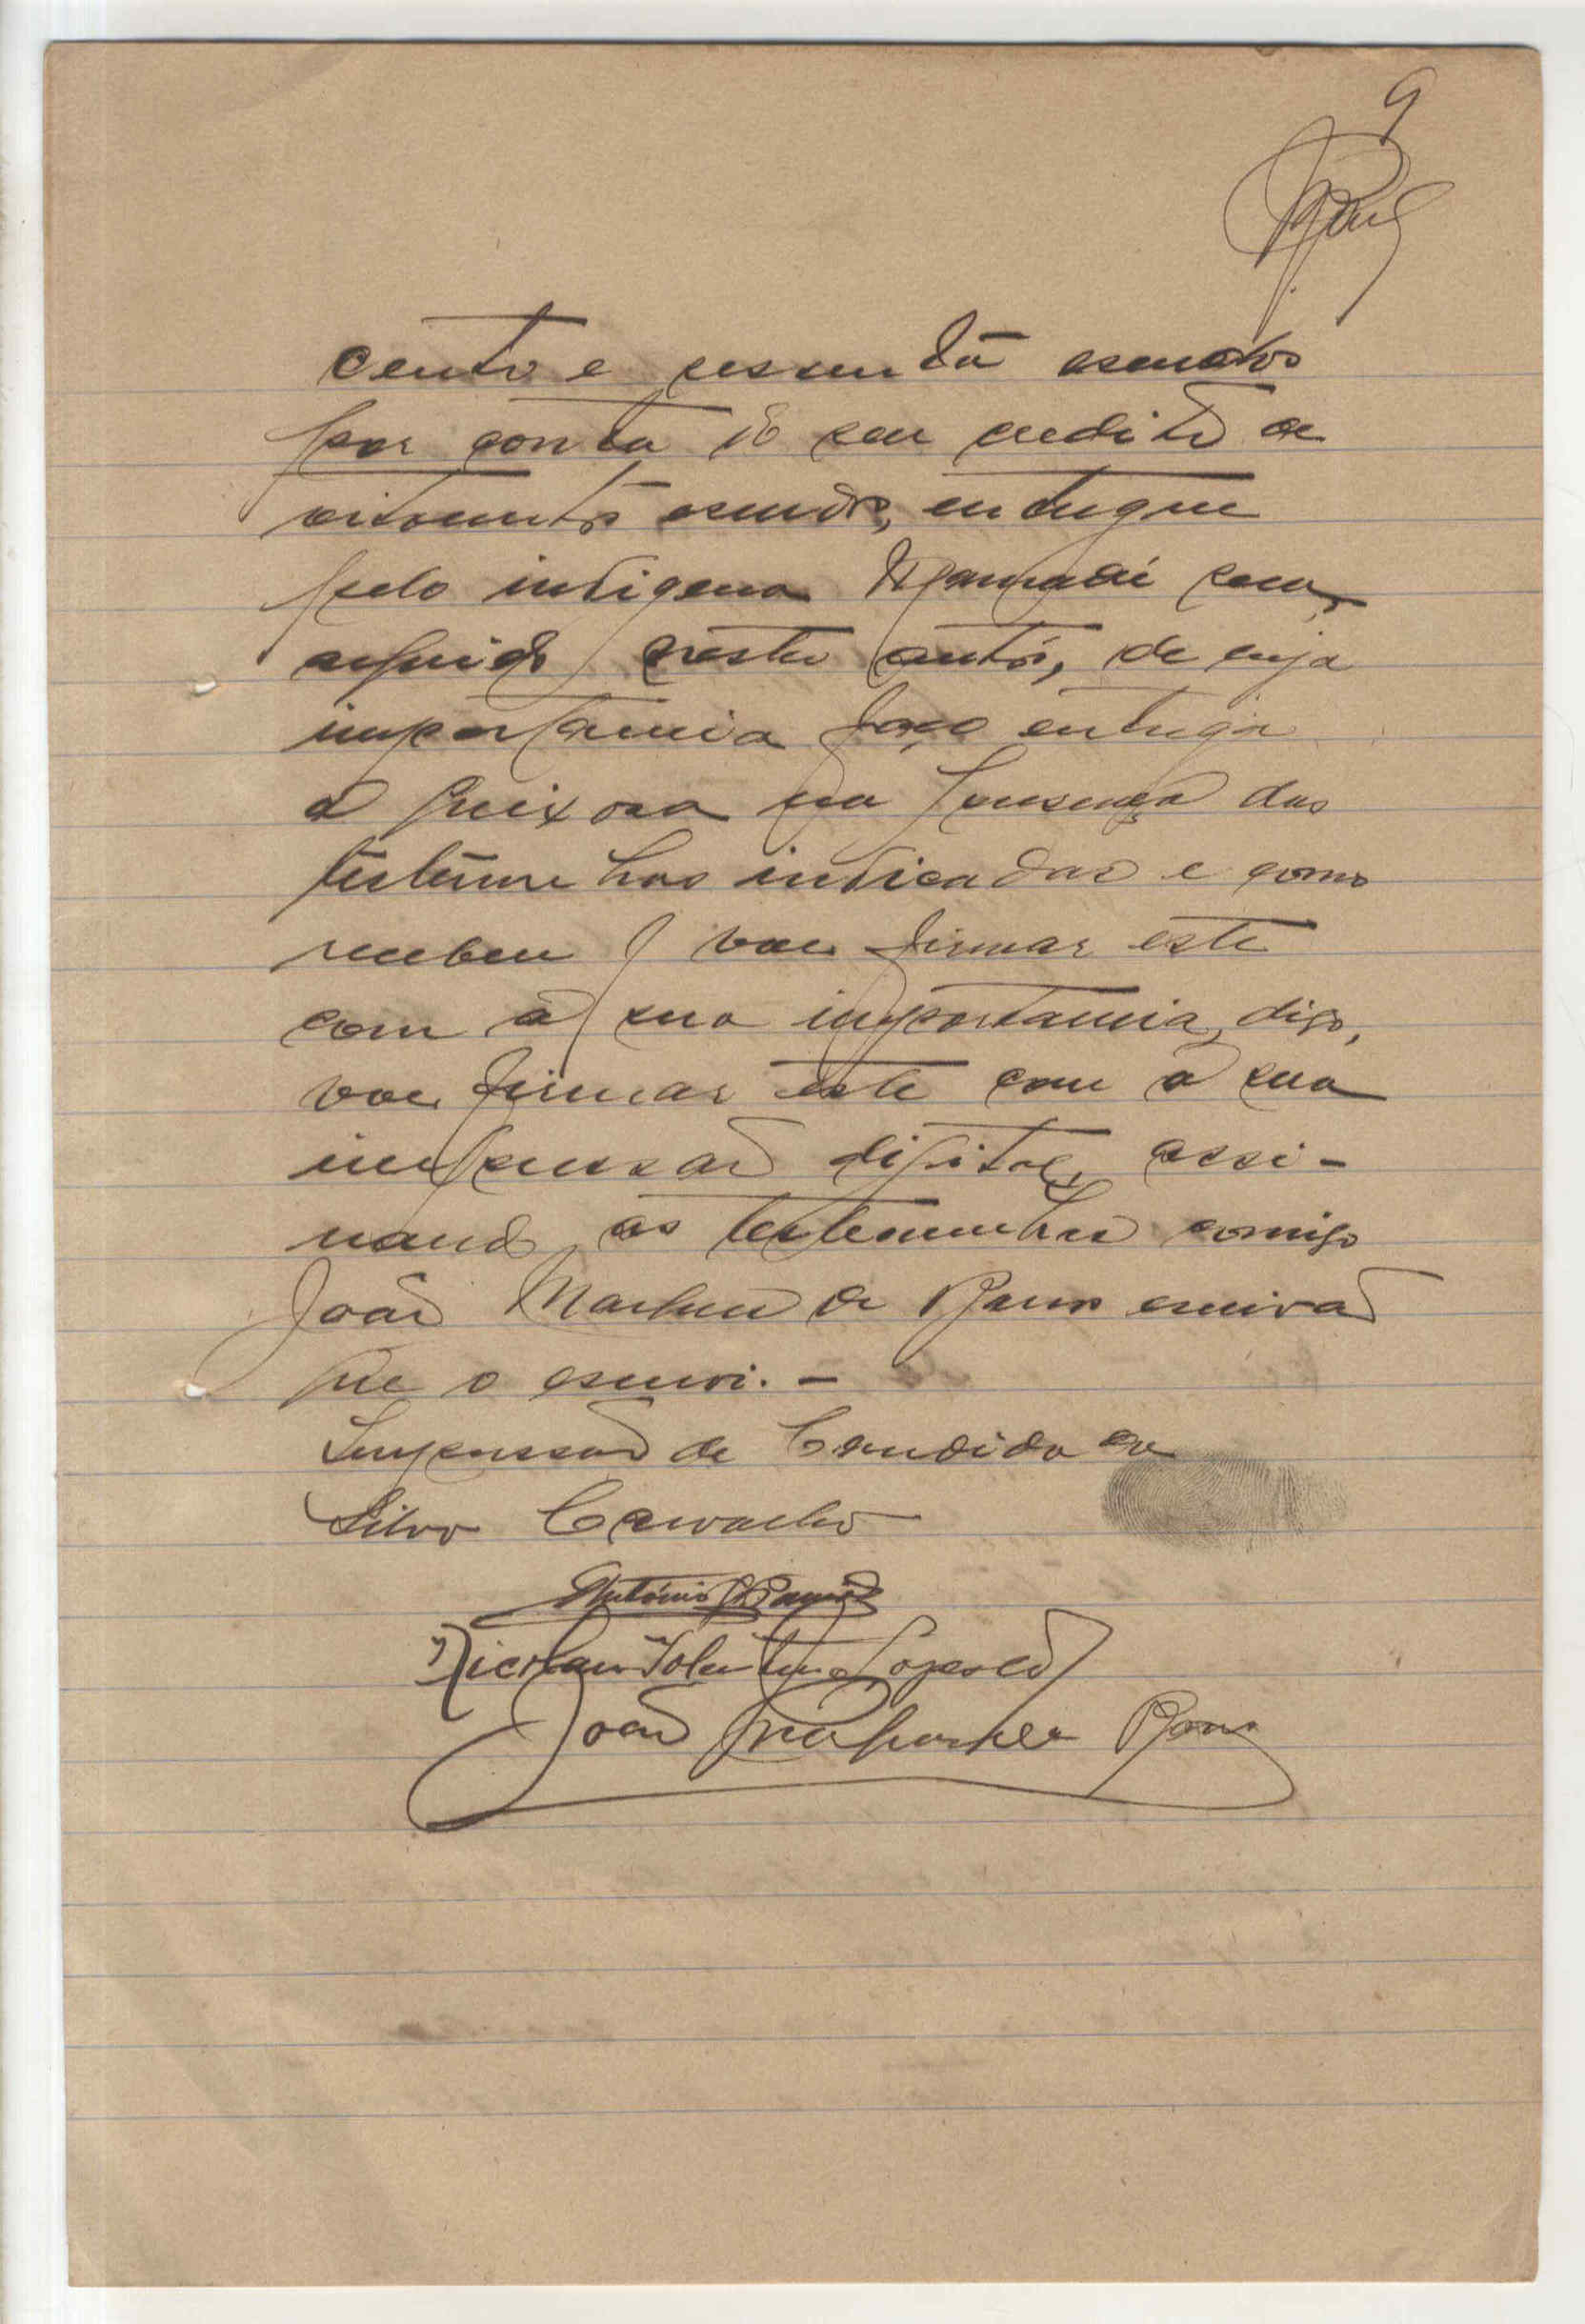 9
cento e sessenta escudos
por conta do seu credito de
oitocentos escudos, entregue
pelo indigena Mamadú
arguido nestes autos, de cuja
importancia faço entrega
á queixosa na presença das
testemunhas indicadas e como
recebeu vae firmar este
com a sua importancia, digo,
vae firmar este com a sua
impressão digital, assi-
nando as testemunhas comigo
João Machado de Barros escrivão
que o escrevi. -
Impressão de Candida da
Silva Carvalho
António
Nicolau Tolentino Lopes
João Barros